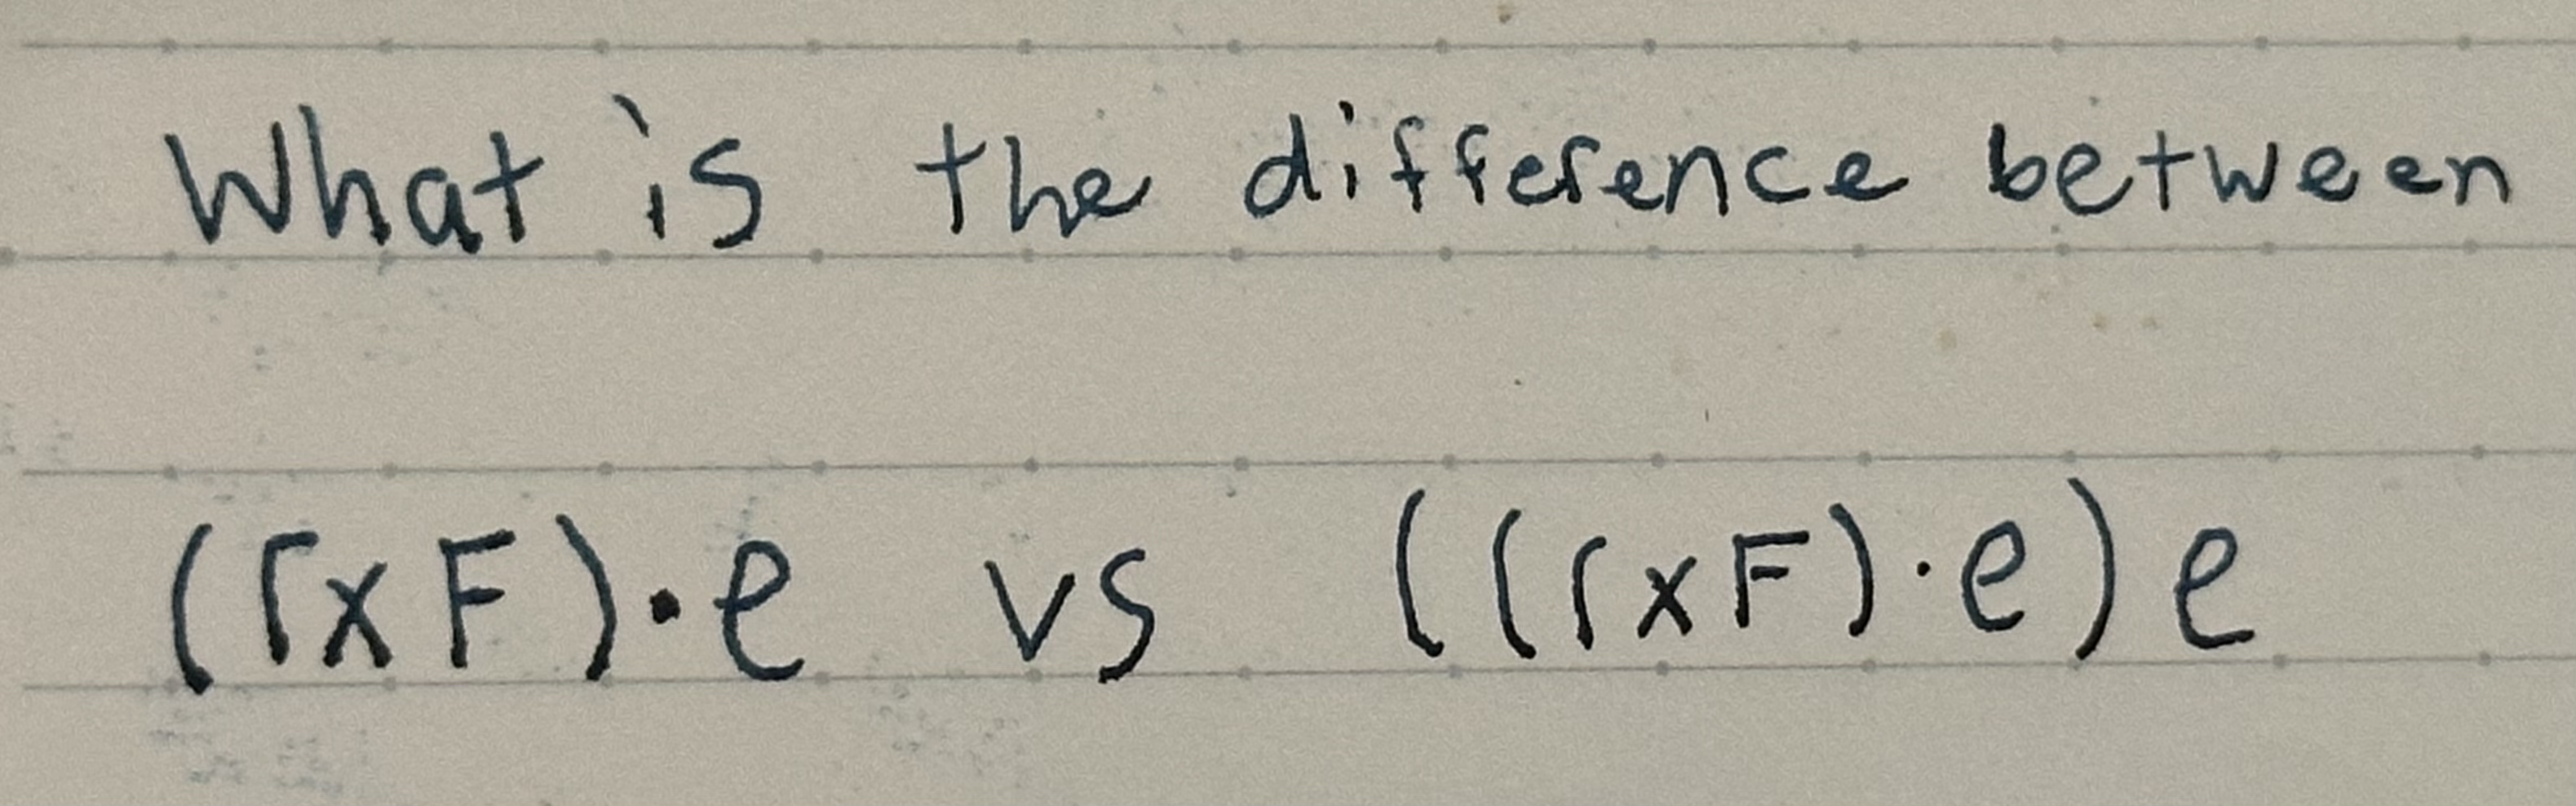 What is the difference between
(r x F) · e vs ((r x F) · e) e